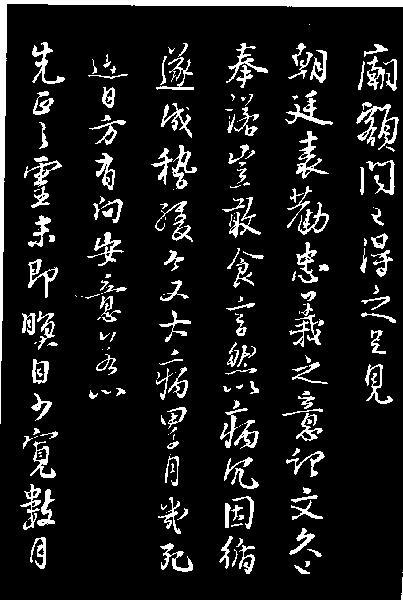 廟額聞已得之足見
朝廷表勸忠義之意記文久已
奉諾豈敢食言然以病冗因循
遂成稽緩今又大病累月幾死
近日方有向安意若以
先正之靈未即瞑目少寬數月